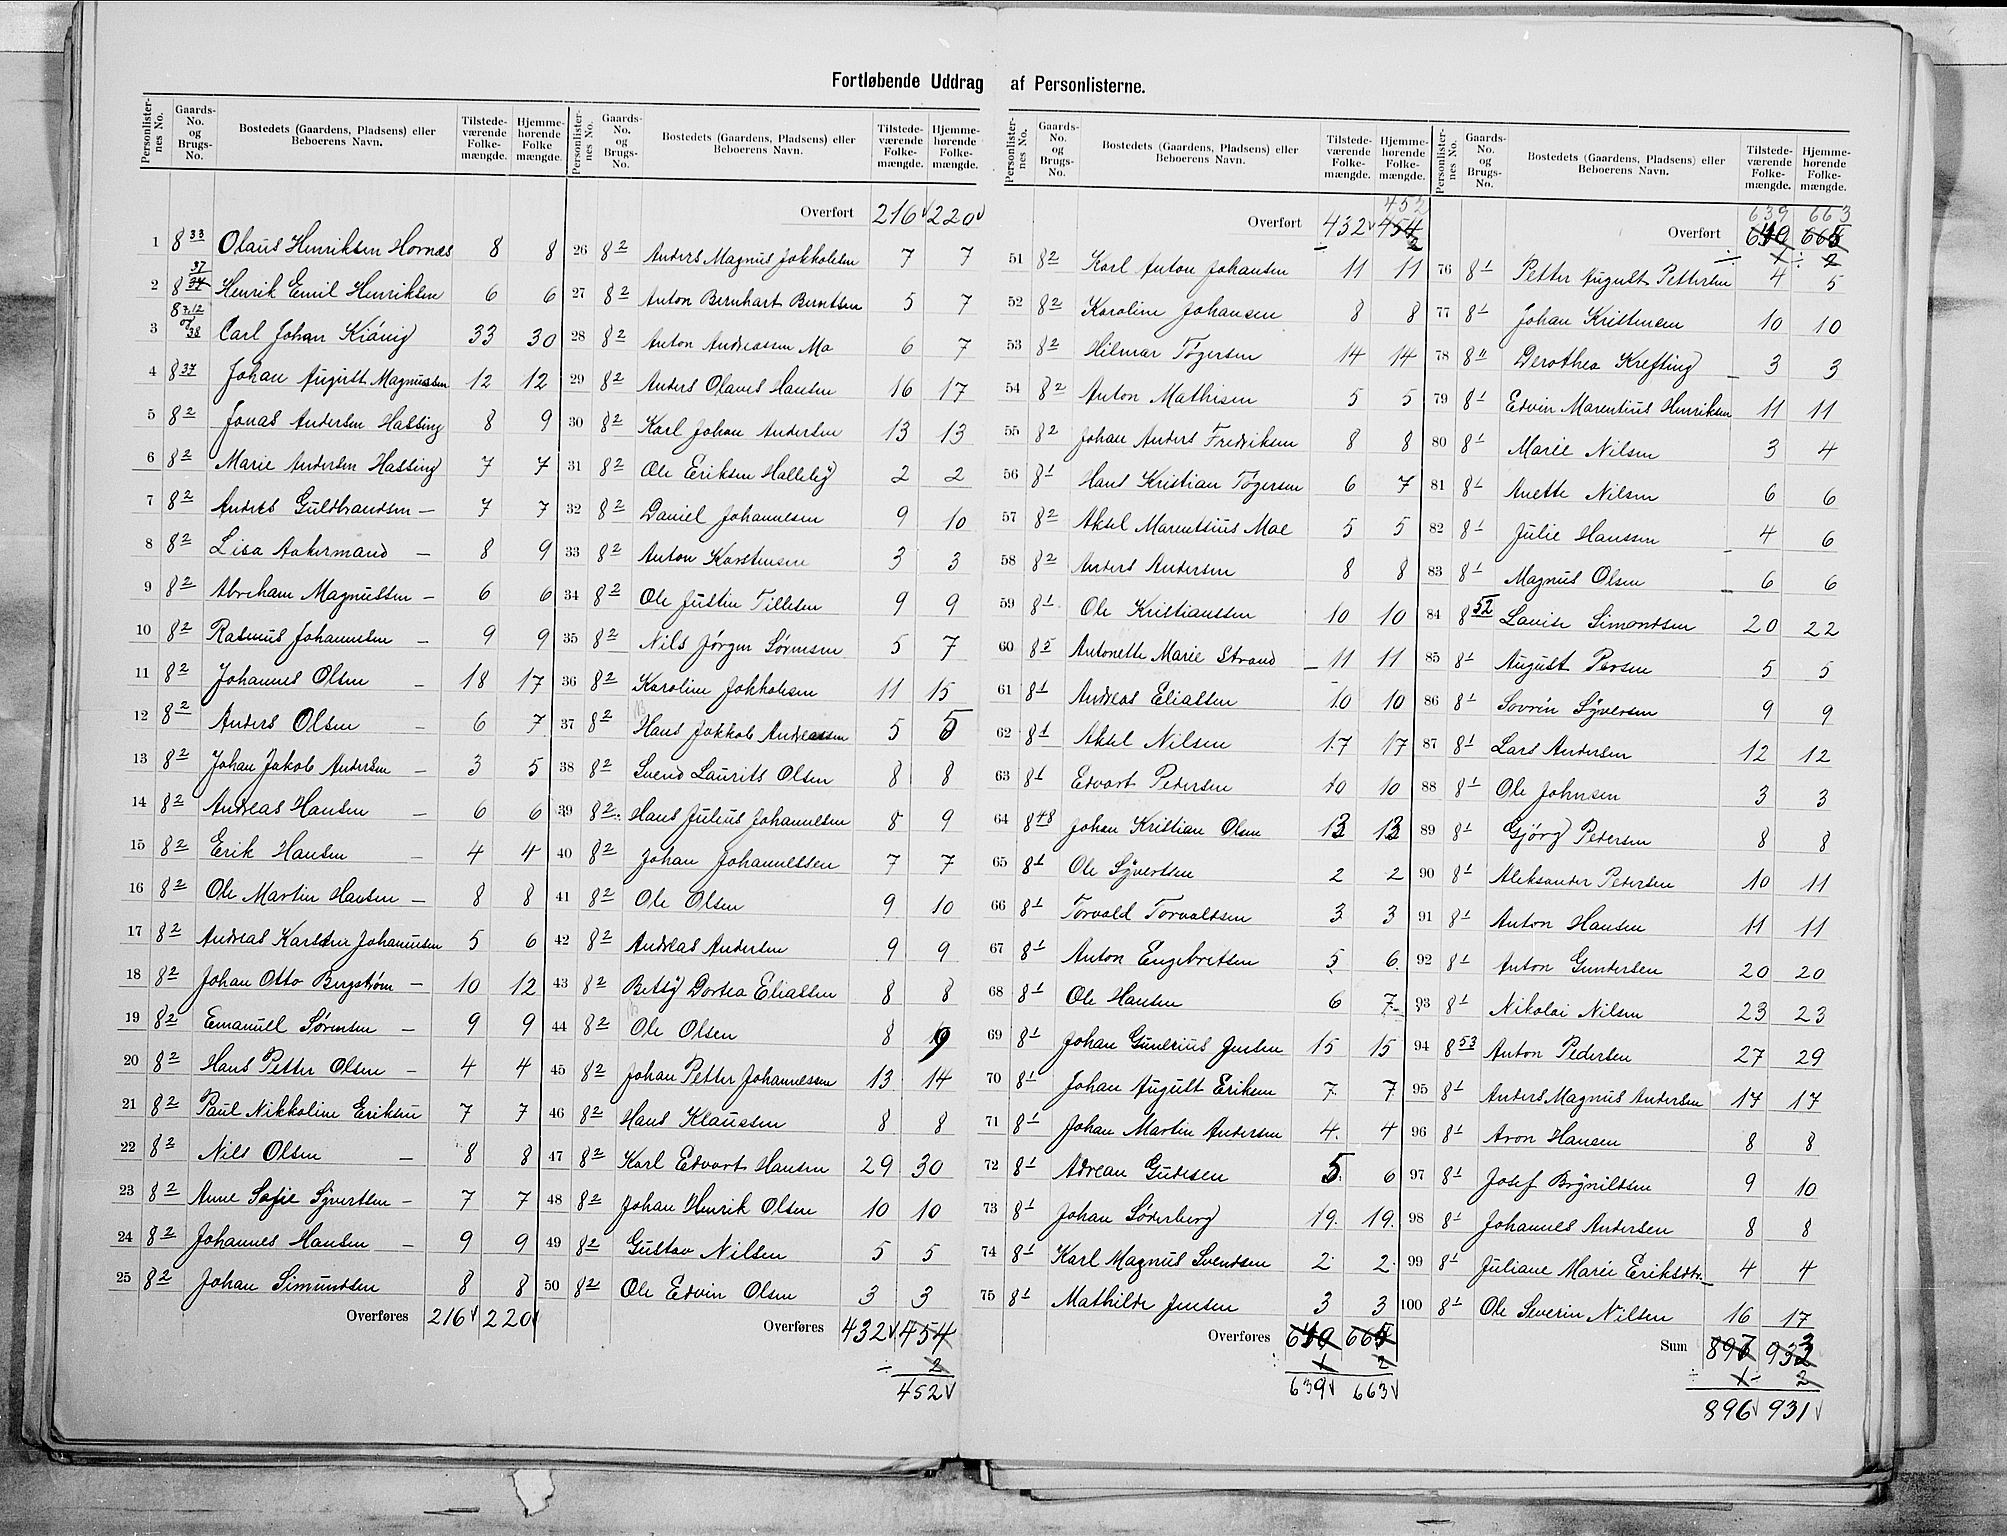 Fortløbende Uddrag af Personlisterne.
Personlister-nes No. Gaards-No. og Brugs-No. Bostedets (Gaardens, Pladsens) eller Beboerens Navn. Tilstede-værende Folke-mængde. Hjemme-hørende Folke mængde.
1 8 33 Olaus Henriksen Hornæs 8 8
2 8 37 Henrik Emil Henriksen 6 6
3 8 7.12 og 38 Carl Johan Kiønig 33 30
4 8 37 Johan August Magnussen 12 12
5 8 2 Jonas Andersen Hassing 8 9
6 8 2 Marie Andersen Hassing 7 7
7 8 2 Anders Guldbrandsen – 7 7
8 8 2 Lisa Aakermand – 8 9
9 8 2 Abreham Magnussen – 6 6
10 8 2 Rasmus Johannesen – 9 9
11 8 2 Johannes Olsen – 18 17
12 8 2 Anders Olsen – 6 7
13 8 2 Johan Jakob Andersen – 3 5
14 8 2 Andreas Hansen – 6 6
15 8 2 Erik Hansen – 4 4
16 8 2 Ole Martin Hansen – 8 8
17 8 2 Andreas Karlsen Johannesen 5 6
18 8 2 Johan Otto Bergstrøm – 10 12
19 8 2 Emanuell Sørensen – 9 9
20 8 2 Hans Petter Olsen – 4 4
21 8 2 Paul Nikkoline Eriksen 7 7
22 8 2 Nils Olsen – 8 8
23 8 2 Anne Sofie Syvertsen – 7 7
24 8 2 Johannes Hansen – 9 9
25 8 2 Johan Simundsen 8 8
Overføres 216 220
Personlister-nes No. Gaards-No. og Brugs-No. Bostedets (Gaardens, Pladsens) eller Beboerens Navn. Tilstede-værende Folke-mængde. Hjemme-hørende Folke-mængde.
Overført 216 220
26 8 2 Anders Magnus Jakkobsen 7 7
27 8 2 Anton Bernhart Berntsen 5 7
28 8 2 Anton Andreassen Mo 6 7
29 8 2 Anders Olaves Hansen 16 17
30 8 2 Karl Johan Andersen 13 13
31 8 2 Ole Eriksen Halleby 2 2
32 8 2 Daniel Johannesen 9 10
33 8 2 Anton Karstensen 3 3
34 8 2 Ole Justin Tillesen 9 9
35 8 2 Nils Jørgen Sørensen 5 7
36 8 2 Karoline Jakkobsen 11 15
37 8 2 Hans Jakkob Andreassen 5 5
38 8 2 Svend Laurits Olsen 8 8
39 8 2 Hans Julius Johannesen 8 9
40 8 2 Johan Johannessen 7 7
41 8 2 Ole Olsen 9 10
42 8 2 Andreas Andersen 9 9
43 8 2 Betsy Dortea Eliassen 8 8
44 8 2 Ole Olsen 8 9
45 8 2 Johan Petter Johannessen 13 14
46 8 2 Hans Klaussen 8 8
47 8 2 Karl Edvart Hansen 29 30
48 8 2 Johan Henrik Olsen 10 10
49 8 2 Gustav Nilsen 5 5
50 8 2 Ole Edvin Olsen 3 3
Overføres 432 454
÷ 2
452
Personlister-nes No. Gaards-No. og Brugs-No. Bostedets (Gaardens, Pladsens) eller Beboerens Navn. Tilstede-værende Folke-mængde. Hjemme-hørende Folke-mængde.
452
Overført 432 454
÷ 2
51 8 2 Karl Anton Johansen 11 11
52 8 2 Karoline Johansen 8 8
53 8 2 Hilmar Tøgersen 14 14
54 8 2 Anton Mathisen 5 5
55 8 2 Johan Anders Fredriksen 8 8
56 8 1 Hans Kristian Tøgersen 6 7
57 8 2 Aksel Marentsius Moe 5 5
58 8 2 Anders Andersen 8 8
59 8 1 Ole Kristianssen 10 10
60 8 5 Antonette Marie Strand 11 11
61 8 1 Andreas Eliassen 10 10
62 8 1 Aksel Nilsen 17 17
63 8 1 Edvart Pedersen 10 10
64 8 48 Johan Kristian Olsen 13 13
65 8 1 Ole Syvertsen 2 2
66 8 1 Torvald Torvaldsen 3 3
67 8 1 Anton Engebretsen 5 6
68 8 1 Ole Hansen 6 7
69 8 1 Johan Gunerius Jensen 15 15
70 8 1 Johan August Eriksen 7 7
71 8 1 Johan Martin Andersen 4 4
72 8 1 Adrean Gudesen 5 6
73 8 1 Johan Søderberg 19 19
74 8 1 Karl Magnus Svendsen 2 2
75 8 1 Mathilde Jensen 3 3
Overføres 640 665
÷ 1 2
639 663
Personlister-nes No. Gaards-No. og Brugs-No. Bostedets (Gaardens, Pladsens) eller Beboerens Navn. Tilstede-værende Folke-mængde. Hjemme-hørende Folke-mængde.
639 663
Overført 640 665
÷ 1 ÷ 2
76 8 1 Petter August Pettersen 4 5
77 8 1 Johan Kristensen 10 10
78 8 11 Dorothea Krefting – 3 3
79 8 1 Edvin Marentius Henriksen 11 11
80 8 1 Marie Nilsen 3 4
81 8 1 Anette Nilsen 6 6
82 8 1 Julie Hanssen – 4 6
83 8 1 Magnus Olsen – 6 6
84 8 52 Lovise Simondsen 20 22
85 8 1 August Persen 5 5
86 8 1 Sovrin Syversen 9 9
87 8 1 Lars Andersen 12 12
88 8 1 Ole Johnsen 3 3
89 8 1 Gjørg Pedersen 8 8
90 8 1 Aleksander Pedersen 10 11
91 8 1 Anton Hansen 11 11
92 8 1 Anton Gundersen 20 20
93 8 1 Nikolai Nilsen 23 23
94 8 53 Anton Pedersen 27 29
95 8 1 Anders Magnus Andersen 17 17
96 8 1 Aron Hansen 8 8
97 8 1 Josef Brynildsen 9 10
98 8 1 Johannes Andersen 8 8
99 8 1 Juliane Marie Eriksdtr. – 4 4
100 8 1 Ole Severin Nilsen 16 17
Sum 897 933
÷ 1 ÷ 2
896 931